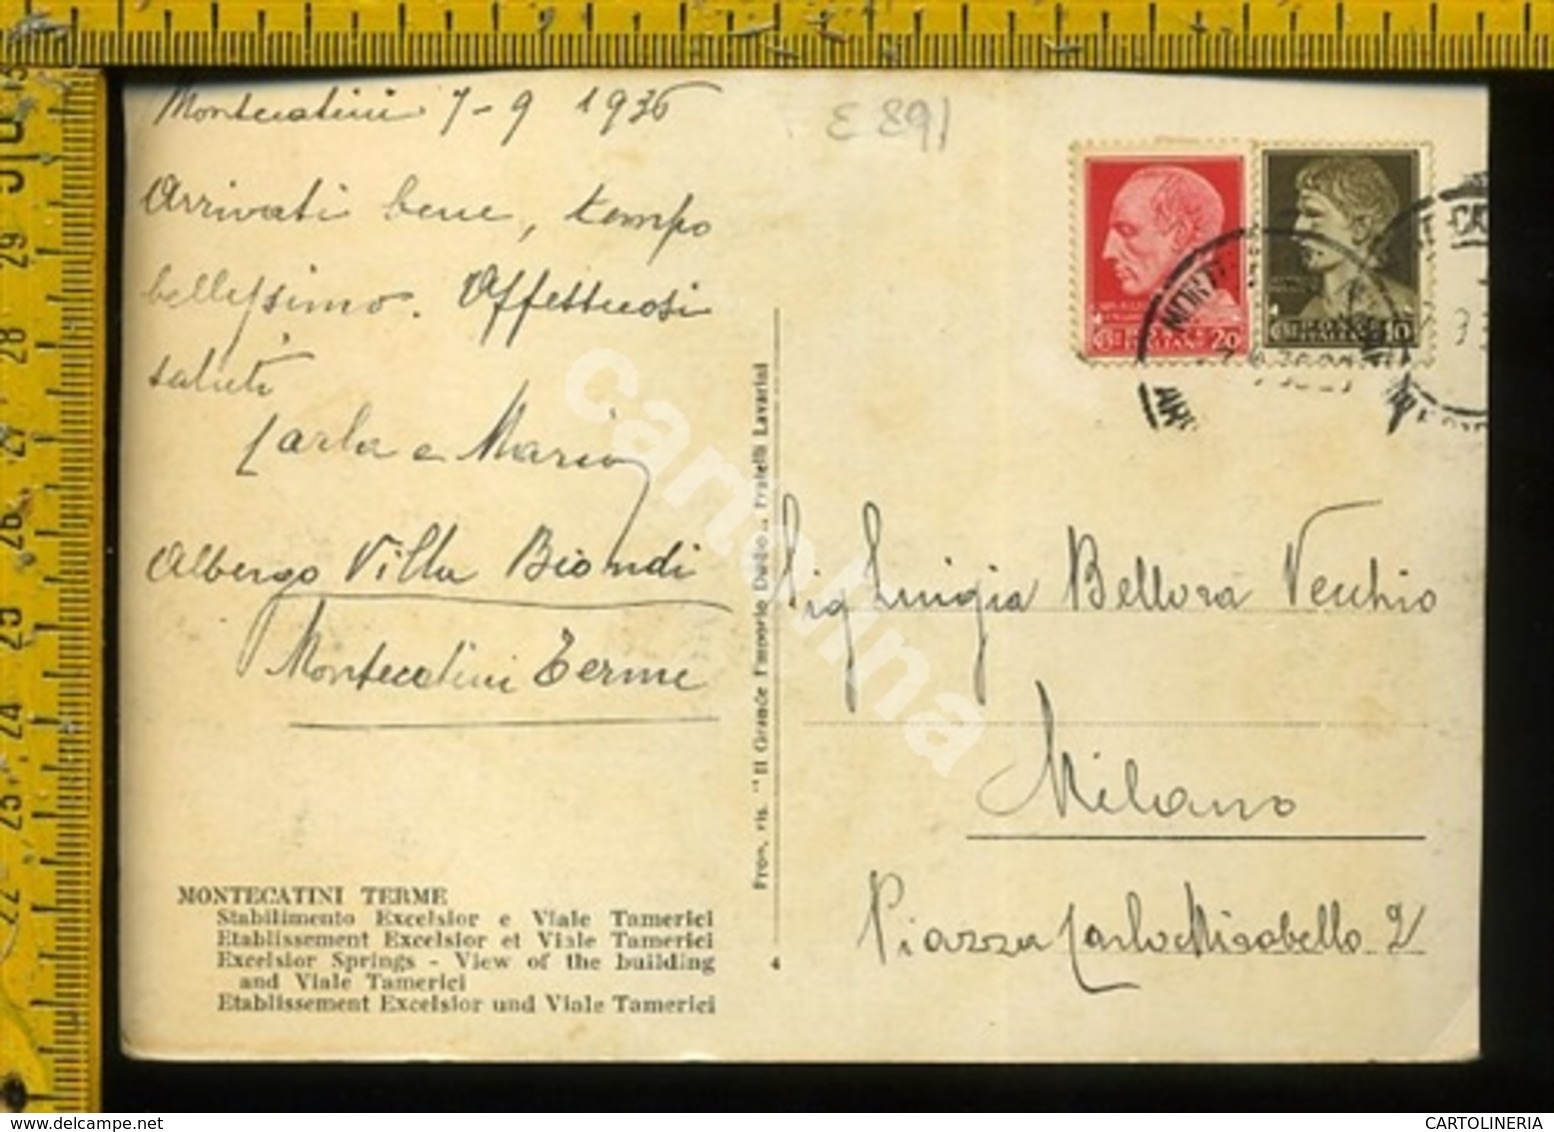 Montecatini 7-9 1936
E 891
Arrivati bene, tempo
bellissimo. Affettuosi
saluti
Carla e Mario
Albergo Villa Biondi
Montecatini Terme
MONTECATINI TERME
Stabilimento Excelsior e Viale Tamerici
Etablissement Excelsior et Viale Tamerici
Excelsior Springs - View of the building
and Viale Tamerici
Etablissement Excelsior und Viale Tamerici
4
"Il Grande Emporio Fratelli Lavarini
20
10
Sig Luigia Bellora Vecchio
Milano
Piazza Carlo Mirabello 2
cartolina
CARTOLINERIA